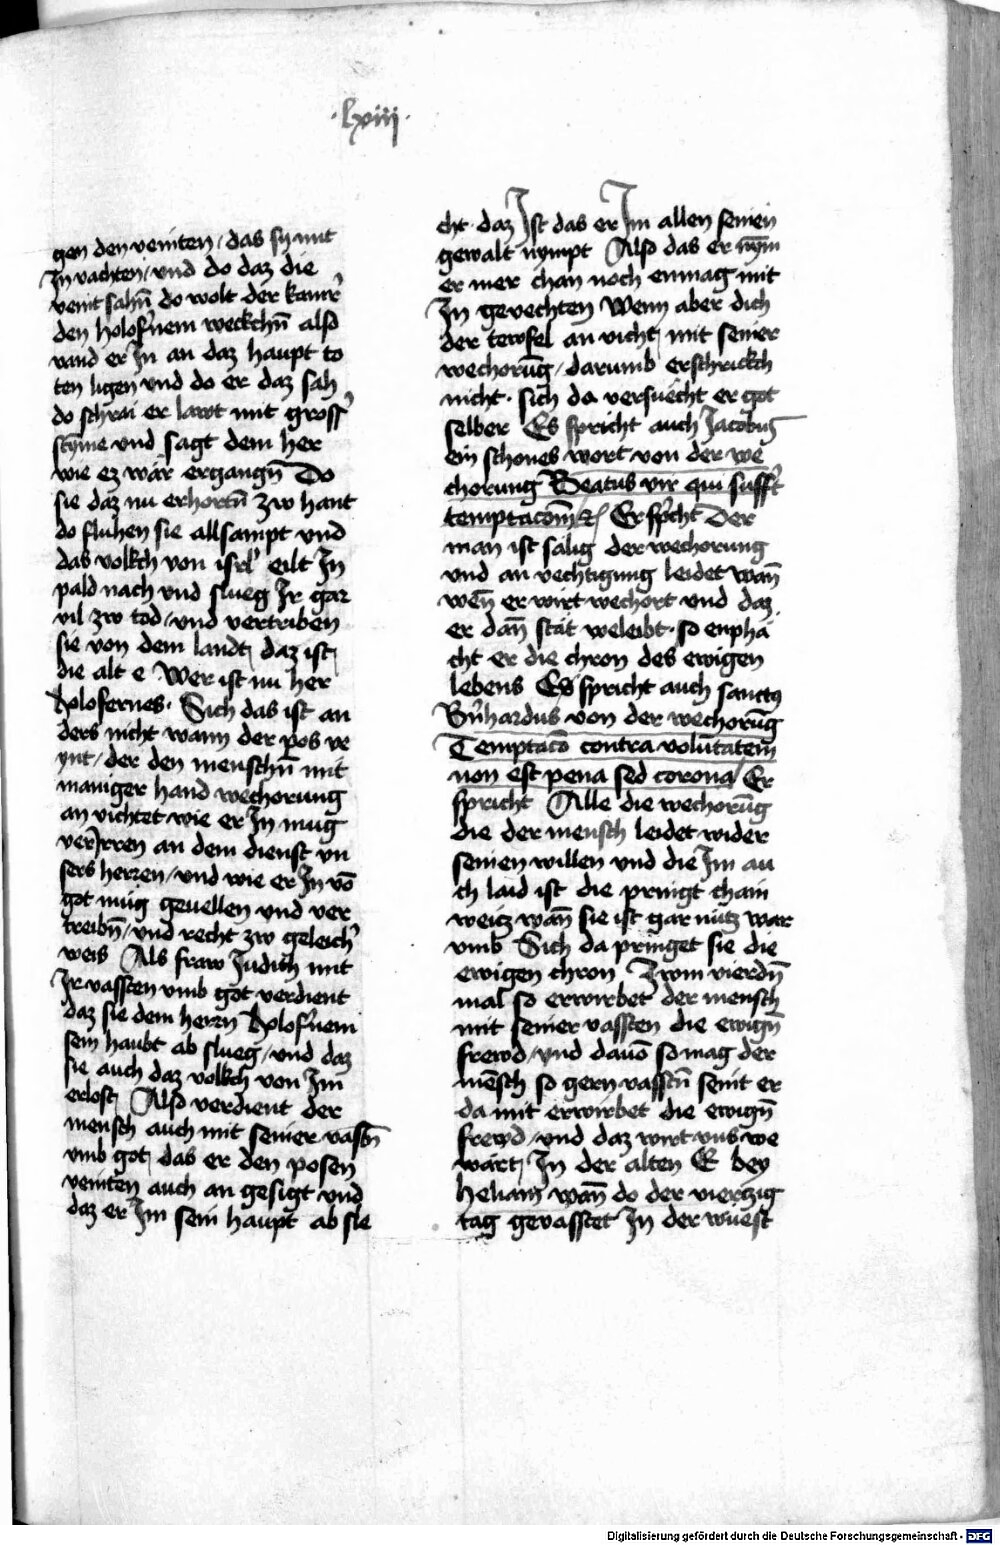 ·lxiiij·
gen den veinten / das sy mit
In vachten / vnd do daz die
veint sahn̄ do wolt der kamr̓
den holof̓nem weckchn̄ also
vand er In an daz haupt to
ten ligen vnd do er daz sah
do schrai er lawt mit gross̓
stȳme vnd sagt dem her
wie ez wär ergangn̄ Do
sie daz nu erhortn̄ zw hant
do fluhen sie allsampt vnd
das volkch von isrl̓ eilt In
pald nach vnd slueg Ir gar
vil zw tod / vnd vertriben
sie von dem landt daz ist
die alt e Wer ist nu her
holofernes · Sich das ist an
ders nicht wann der pos ve
ynt / der den menschn̄ mit
maniger hand wechorung
an vichtet wie er In mug
verirren an dem dienst vn
sers herren / vnd wie er In vō
got müg geuellen vnd ver
treibn̄ / vnd recht zw geleich̓
weis Als fraw Judith mit
Ir vassten vmb got verdient
daz sie dem herrn Holof̓nem
sein haubt ab slueg / vnd daz
sie auch daz volkch von Im
erlost Also verdient der
mensch auch mit seiner vastn̄
vmb got das er den posen
veinten auch an gesigt vnd
daz er Im sein haupt ab sle
cht · daz Ist das er Im allen seinen
gewalt nympt Also das er nȳm
er mer chan noch enmag mit
In gevechten Wenn aber dich
der tewfel an vicht mit seiner
wechorūg / darumb erschrickch
nicht · sich da versuecht er got
selber Es spricht auch Jacobus
ein schones wort von der we
chorung Beatus vir qui suff̓t
temptacōm &c̄ Er sp̓cht Der
man ist sälig der wechorung
vnd an vechtigung leidet wan̄
wēn er wirt wechort vnd daz
er dan̄ stät weleibt · so enphä
cht er die chron des ewigen
lebens Es spricht auch sanctus
Bn̓hardus von der wechorūg
Temptacō contra volūtatem
non est pena sed corona / Er
spricht Alle die wechorūg
die der mensch leidet wider
seinen willen vnd die Im au
ch laid ist die pringt chain
weicz wan̄ sie ist gar nutz war
vmb Sich da pringet sie die
ewigen chron Zwm vierdn̄
mal so erwirbet der mensch
mit seiner vassten die ewign̄
frewd / vnd dauō so mag der
mēsch so gern vasstn̄ seint er
da mit erwirbet die ewign̄
frewd / vnd daz wirt vns we
wärt In der alten E bey
heliam wan̄ do der vierczig
tag geuasstet In der wüest
Digitalisierung gefördert durch die Deutsche Forschungsgemeinschaft - DFG